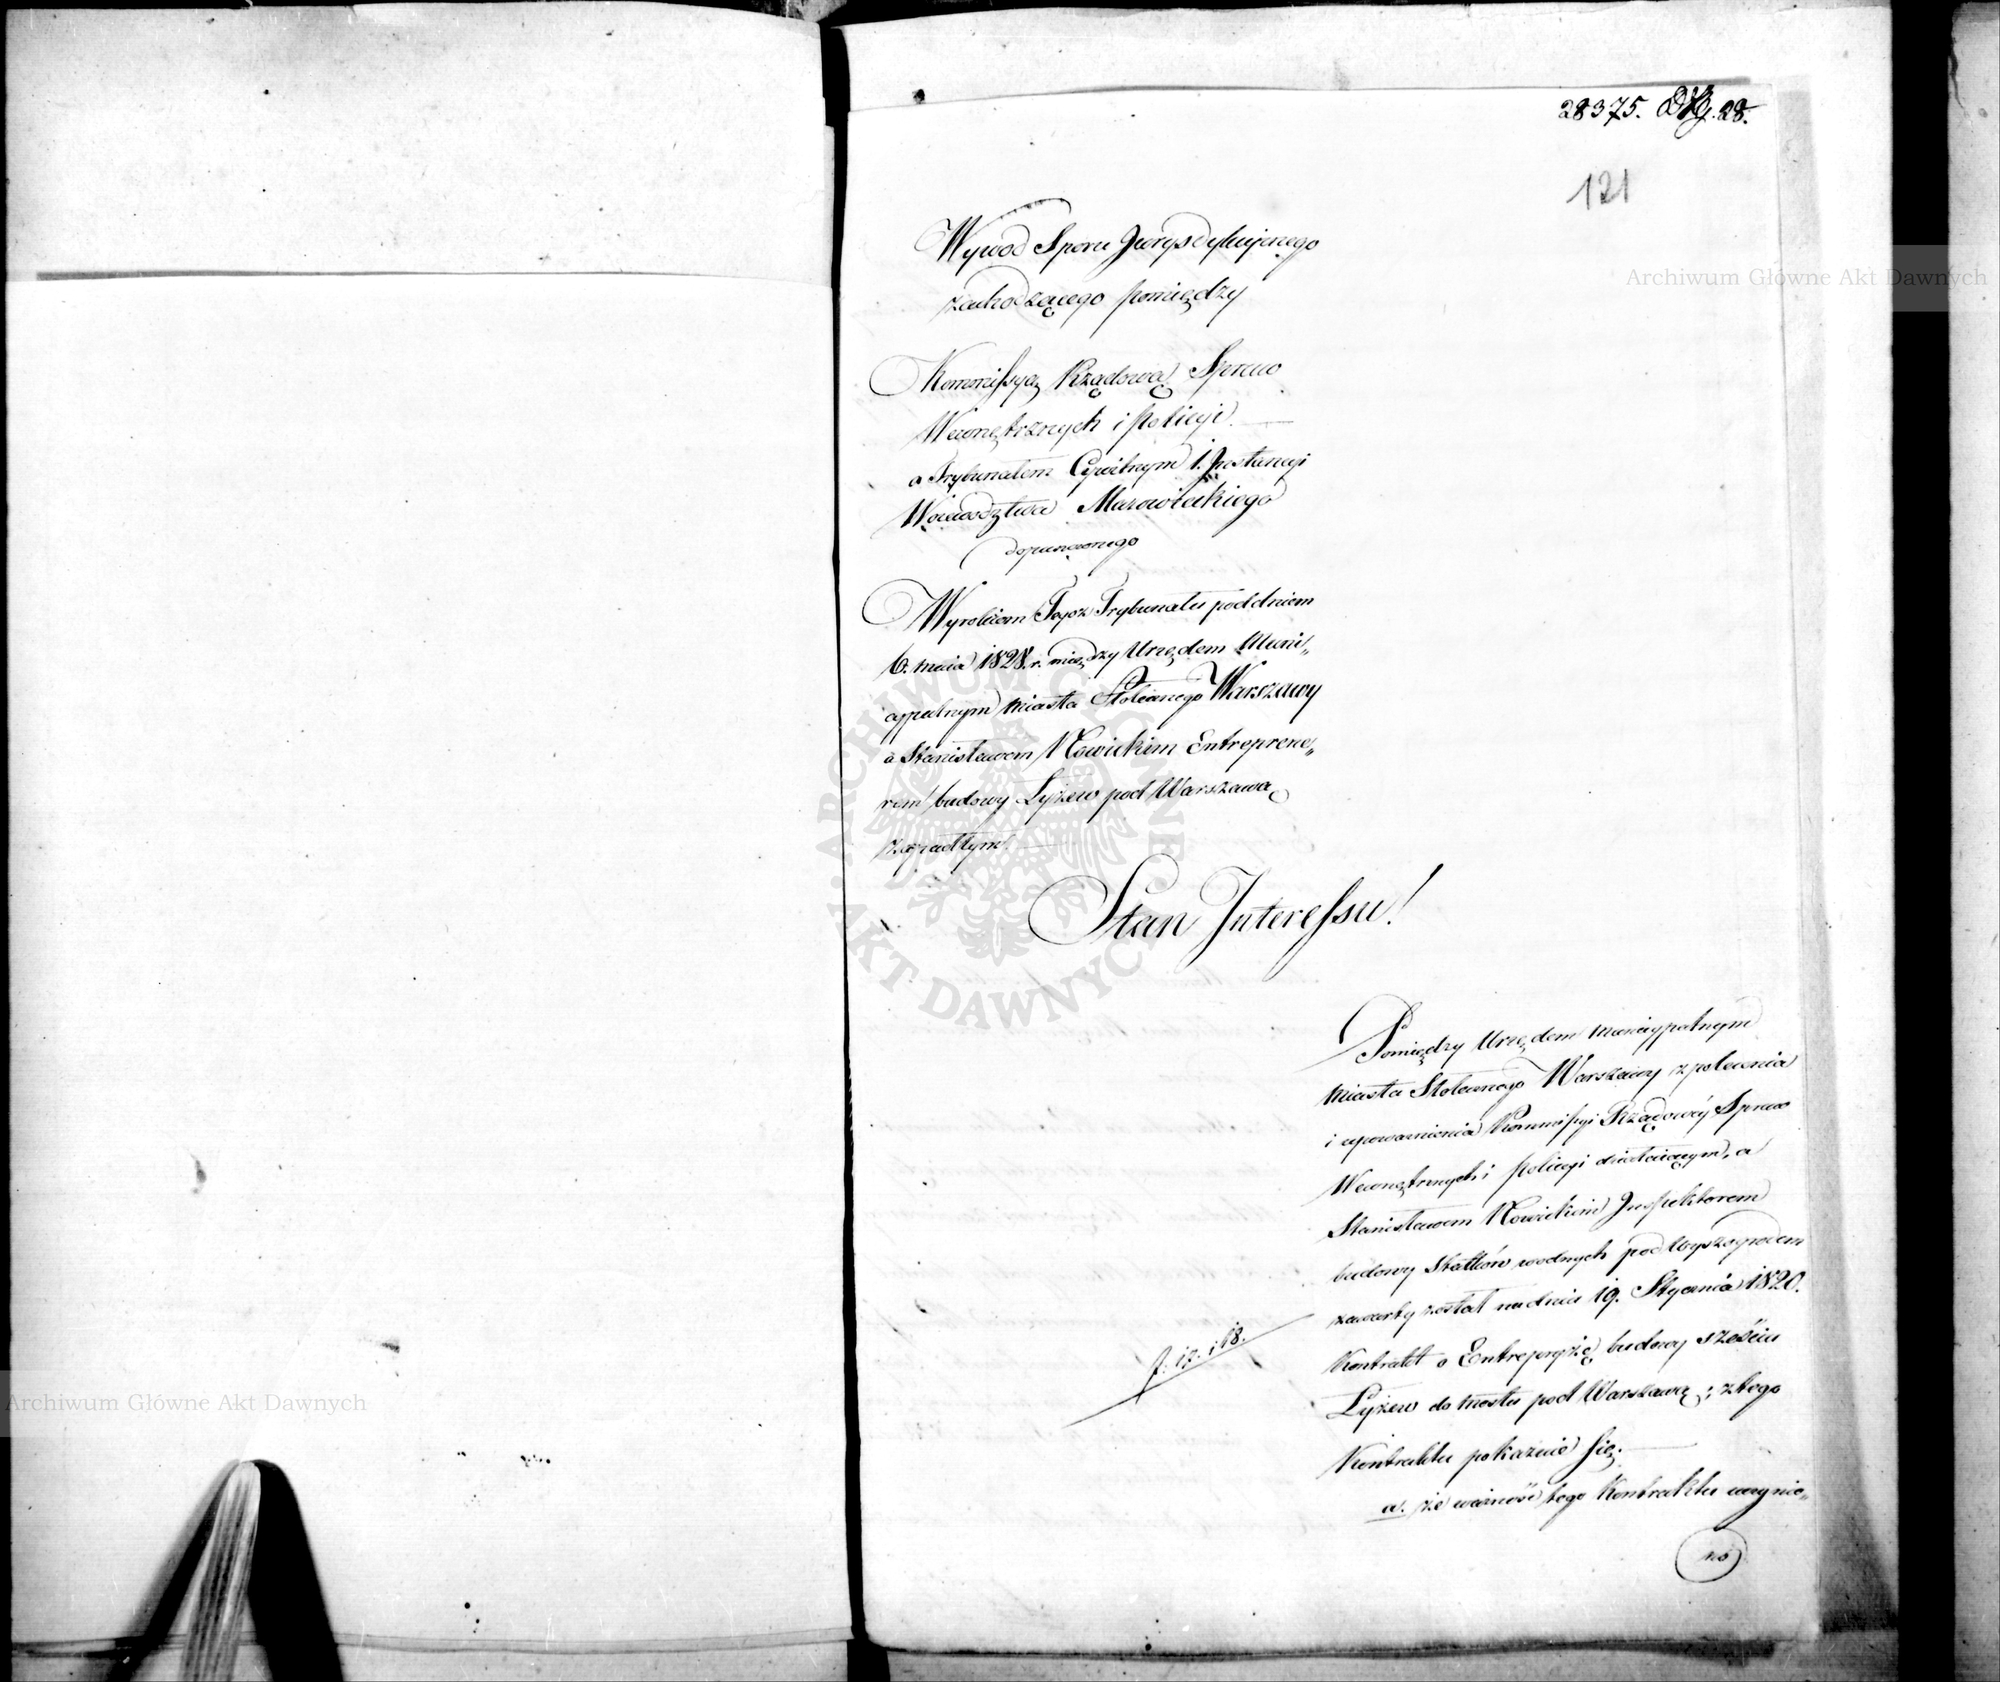 28375. 28.
121
Wywod Sporu Jurysdykcyjnego
zachodzącego pomiędzy
Kommissyą Rządową Spraw
Wewnętrznych i Policyi
a Trybunałem Cywilnym 1. Instancyi
Wojewodztwa Mazowieckiego
dopuszczonego
Wyrokiem Tegoż Trybunału pod dniem
6. maia 1828. r. między Urzędem Muni„
cypalnym Miasta Stołecznego Warszawy
a Stanisławem Nowickim Entreprene„
rem budowy Łyżew pod Warszawą
zapadłym.
Stan Interessu!
Pomiędzy Urzędem municypalnym
Miasta Stołecznego Warszawy z polecenia
i upoważnienia Kommissyi Rządowéy Spraw
Wewnętrznych i Policyi działaiącym, a
Stanisławem Nowickim Inspektorem
budowy Statków wodnych pod Wyszogrodem
zawarty został na dniu 19. Stycznia 1820.
Kontrakt o Entrepryzę budowy sześciu
Łyżew do mostu pod Warszawą; z tego
f. 17. i 18.
Kontraktu pokazuie się.
a. że ważność tego Kontraktu uczynio„
no
Archiwum Główne Akt Dawnych
Archiwum Główne Akt Dawnych
ARCHIWUM GŁÓWNE AKT DAWNYCH